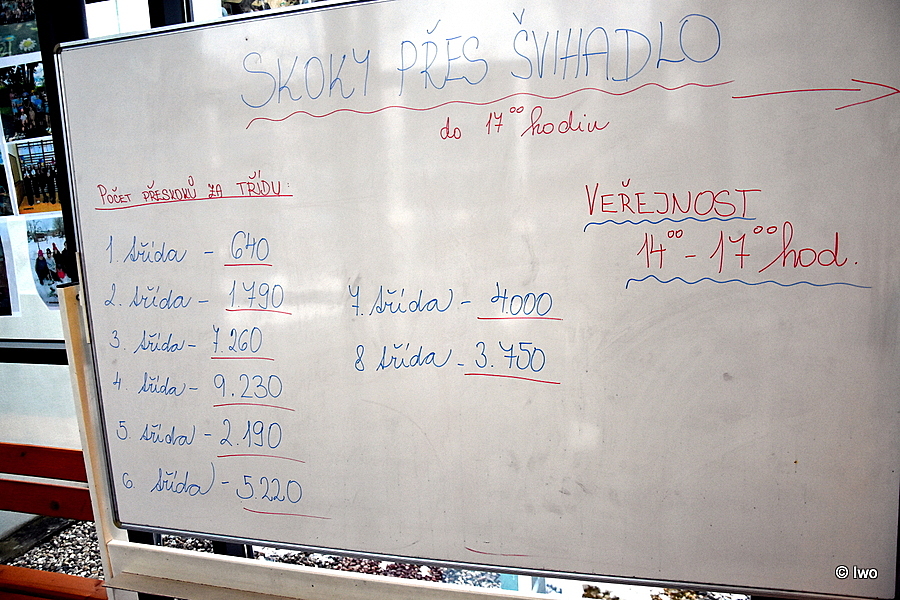 SKOKY PŘES ŠVIHADLO
do 17⁰⁰ hodin
POČET PŘESKOKŮ ZA TŘÍDU:
1. třída - 640
2. třída - 1.790
3. třída - 7.260
4. třída - 9.230
5. třída - 2.190
6. třída - 5.220
7. třída - 4.000
8 třída - 3.750
VEŘEJNOST
14⁰⁰ - 17⁰⁰ hod.
© Iwo